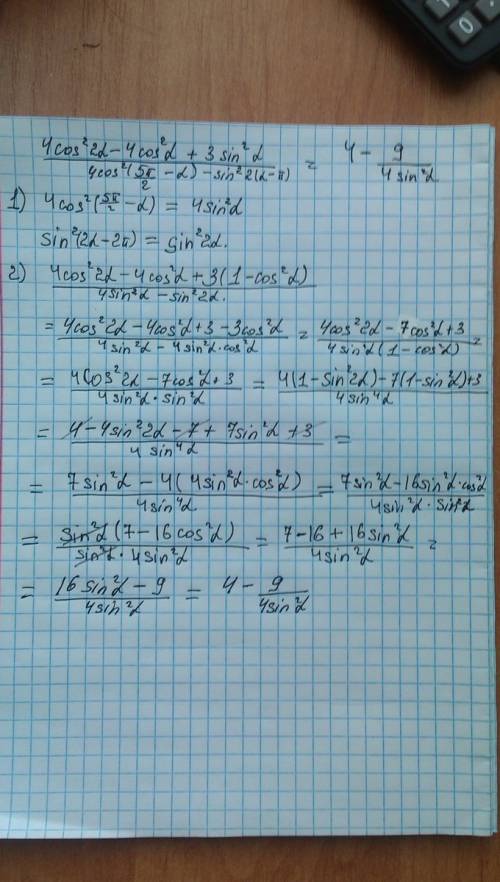 (4cos²2α - 4cos²α + 3sin²α)/(4cos²(5π/2 - α) - sin²2(α-π)) = 4 - 9/(4sin²α)
1) 4cos²(5π/2 - α) = 4sin²α
sin²(2α-2π) = sin²2α.
2) (4cos²2α - 4cos²α + 3(1-cos²α))/(4sin²α - sin²2α.)
= (4cos²2α - 4cos²α + 3 - 3cos²α)/(4sin²α - 4sin²α·cos²α) = (4cos²2α - 7cos²α + 3)/(4sin²α(1-cos²α)) =
= (4cos²2α - 7cos²α + 3)/(4sin²α·sin²α) = (4(1-sin²2α) - 7(1-sin²α) + 3)/(4sin⁴α)
= (4 - 4sin²2α - 7 + 7sin²α + 3)/(4sin⁴α) =
= (7sin²α - 4(4sin²α·cos²α))/(4sin⁴α) = (7sin²α - 16sin²α·cos²α)/(4sin²α·sin²α)
= (sin²α(7-16cos²α))/(sin²α·4sin²α) = (7-16+16sin²α)/(4sin²α) =
= (16sin²α - 9)/(4sin²α) = 4 - 9/(4sin²α)